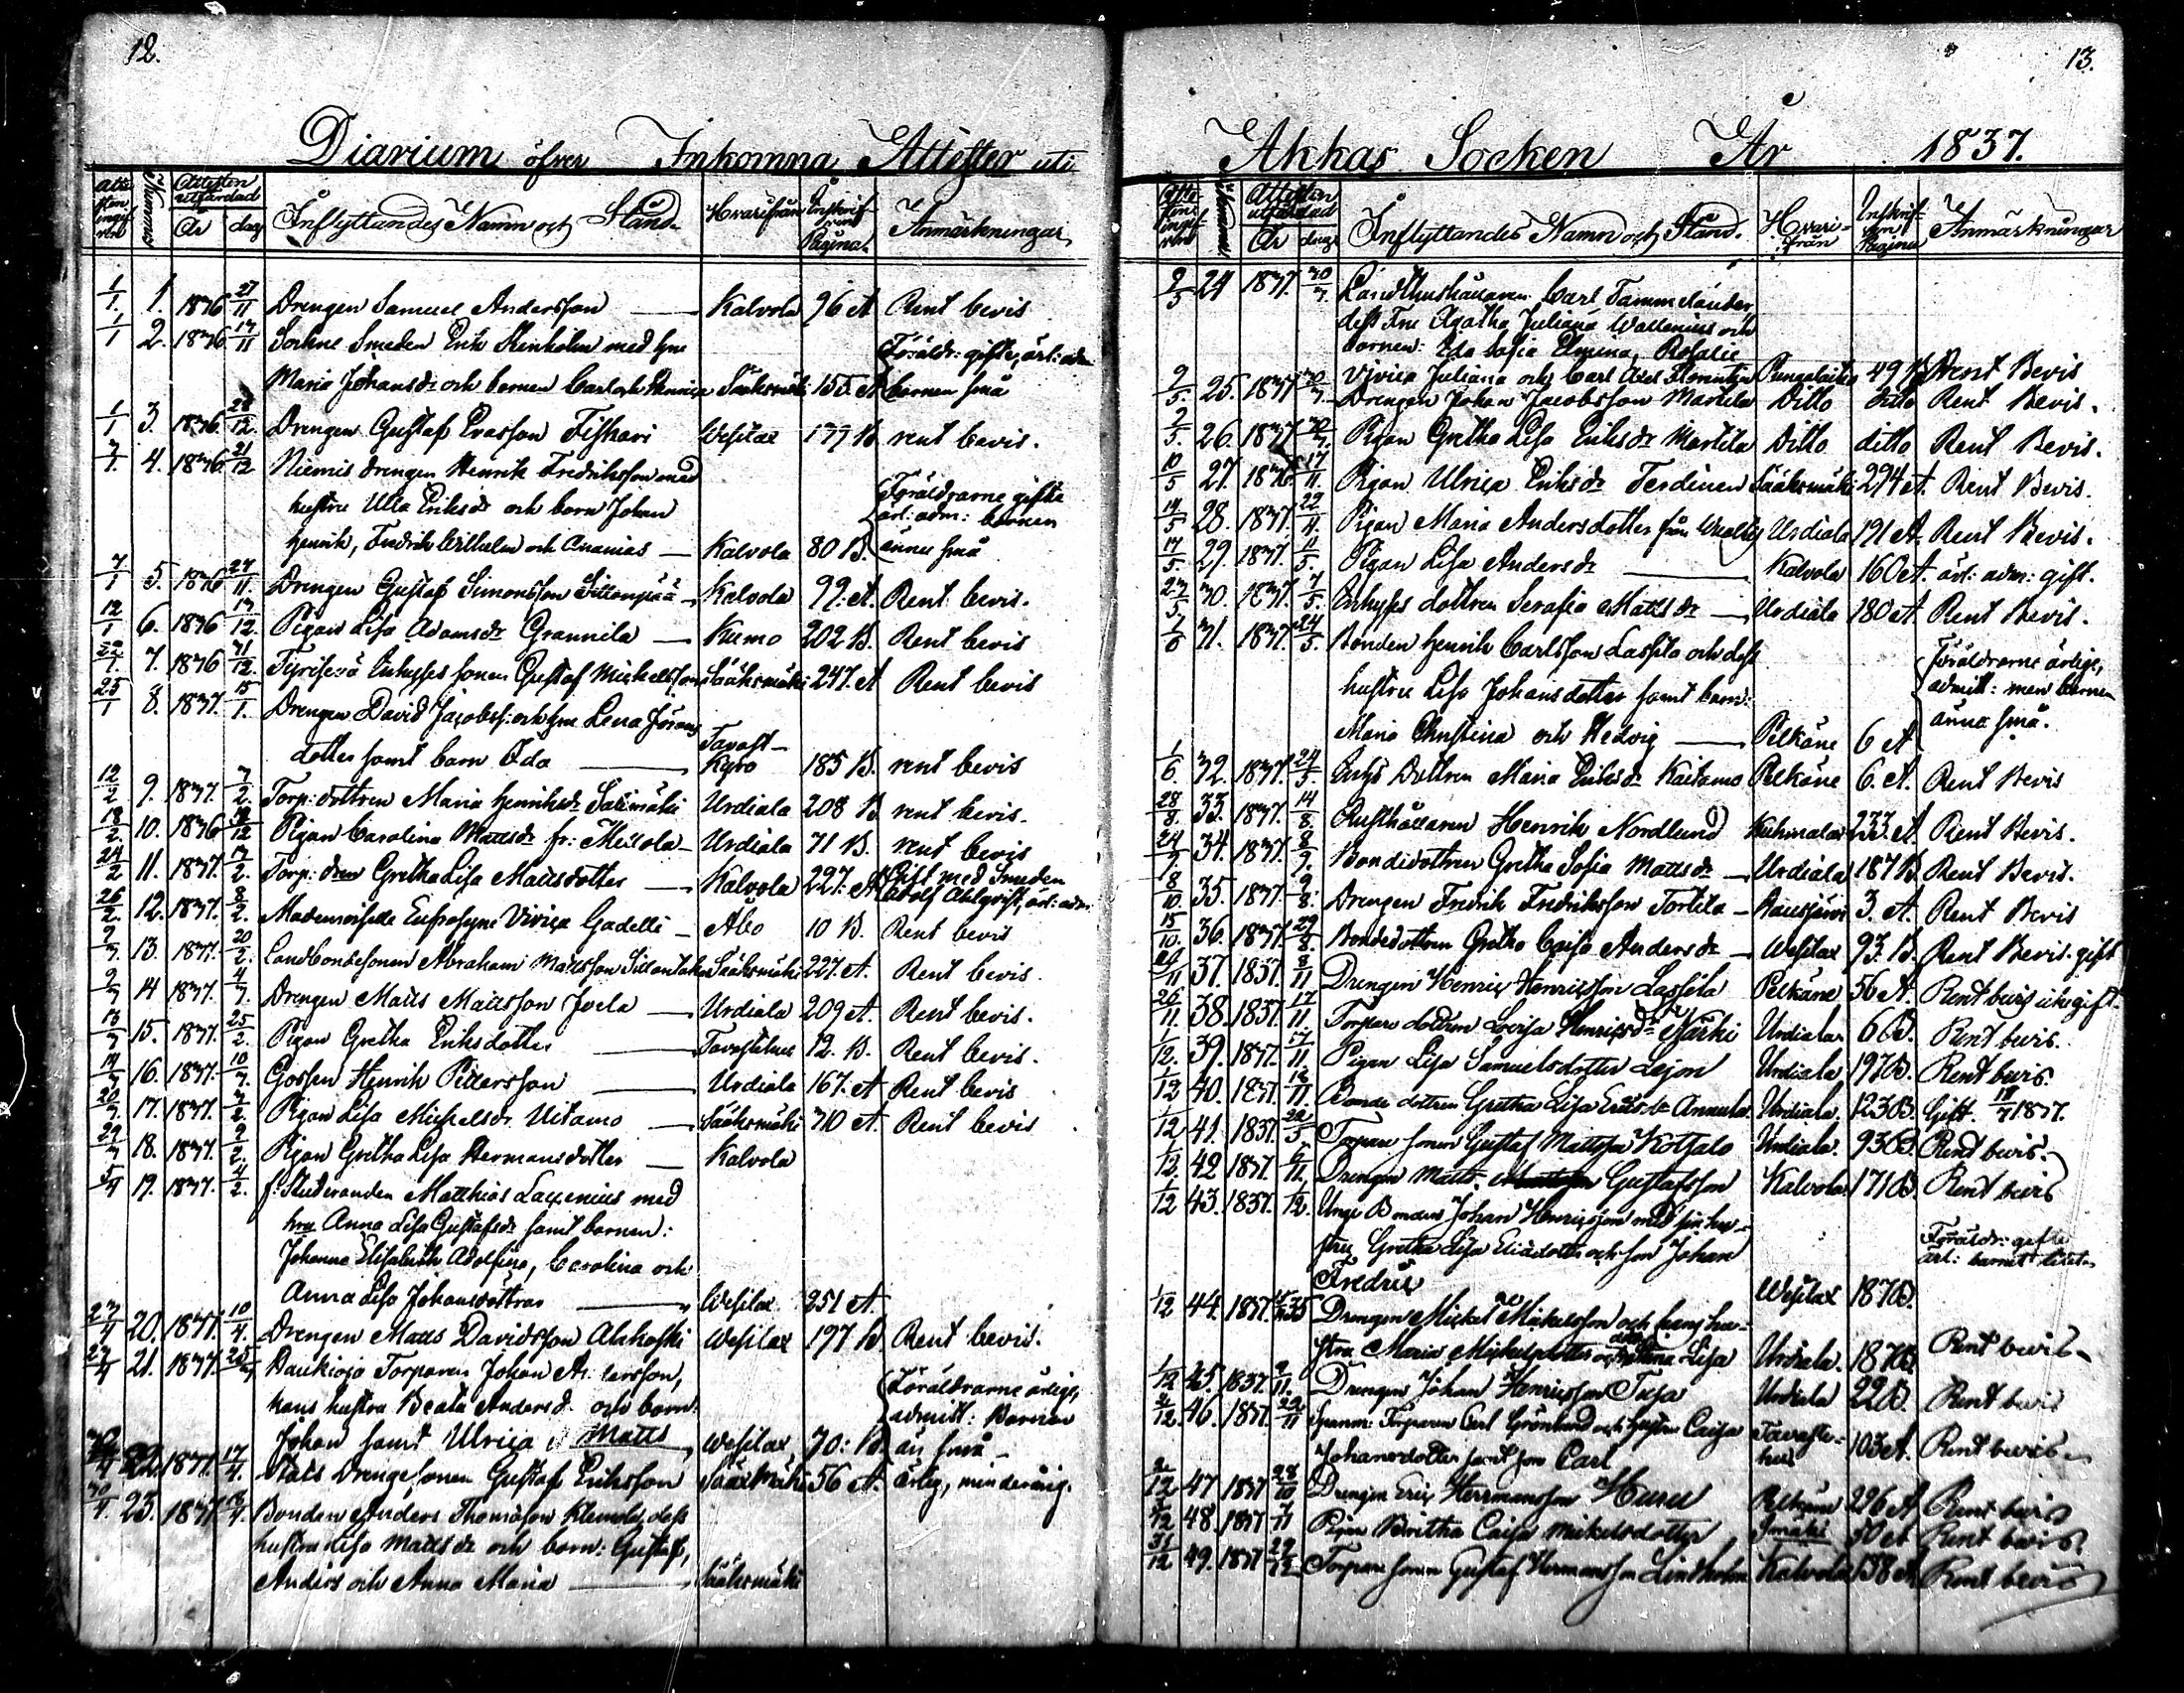 12.
Diarium öfver Inkomna Attester uti
Attesten ingifven Numerus Attesten utfärdad År dag Inflyttandes Namn och Stånd Hvarifrån Inskrifven Pagina Anmärkningar
1/1 1. 1836 27/11 Drengen Samuel Andersson — Kalvola 96 A Rent bevis
1/1 2. 1836 14/11 Sockne Smeden Erik Stenholm med hu Föräldr: gifte, ärl: adm
Maria Johansdr och barnen Carl och Henrica Sääksmäki 155 A barnen små
1/1 3. 1836 28/12 Drengen Gustaf Erasson Fiskari Wesilax 177 B rent bevis.
3/1 4. 1836 21/12 Niemis drengen Henrik Fredriksson med
hustru Ulla Eriksdr och barn Johan Föräldrarne gifte ärl: adm: barnen
Henrik, Fredrik Wilhelm och Ananias — Kalvola 80 B. ännu små
7/1 5. 1836 27/11 Drengen Gustaf Simonsson Sittanpää Kalvola 99. A. Rent bevis.
12/1 6. 1836 13/12 Pigan Lisa Adamsdr Grannila — Kumo 202 B. Rent bevis
22/1 7. 1836 31/12 Enkysses sonen Gustaf Mickelsson Sääksmäki 247. A Rent bevis
25/1 8. 1837. 15/1. Drengen David Jacobss: och hu Lena Jörans
dotter samt barn Ida — Tavast-Kyro 185 B. rent bevis
12/2 9. 1837. 7/2. Torp: dottren Maria Henriksdr Salimäki Urdiala 208 B rent bevis.
18/2 10. 1836 /12 Pigan Carolina Mattsdr fr: Mellola — Urdiala 71 B. rent bevis
24/2 11. 1837. 13/2. Torp: dren Gretha Lisa Mattsdotter — Kalvola 227. A Gift med Smeden Adolf Ahlqvist, ärl: adm:
26/2. 12. 1837. 8/2. Mademoiselle Eufrosyne Vivica Gadelli — Åbo 10 B. Rent bevis
2/3. 13. 1837. 20/2. Landbondesonen Abraham Mattsson Sääksmäki 227. A. Rent bevis.
9/3 14 1837. 4/3. Drengen Matts Mattsson Joela — Urdiala 209 A. Rent bevis.
13/3 15. 1837. 25/2. Pigan Gretha Eriksdotter — Tavastehus 12. B. Rent bevis.
14/3 16. 1837. 10/3. Gossen Henrik Pettersson — Urdiala 167. A Rent bevis
20/3. 17. 1837. 3/2. Pigan Lisa Michelsdr Uitamo — Sääksmäki 310 A Rent bevis
29/3 18. 1837. 9/2. Pigan Gretha Lisa Hermansdotter — Kalvola
5/4 19. 1837. 4/2. f. Studeranden Matthias Laxenius med
hru Anna Lisa Gustafsdr samt barnen:
Johanna Elisabeth Adolfina, Carolina och
Anna Lisa Johansdöttrar — Wesilax 251 A.
23/4 20. 1837. 10/4. Drengen Matts Davidsson Alakoski Wesilax 197 B Rent bevis.
23/4 21. 1837. Paukioja Torparen Johan A: lersson,
hans hustru Beata Andersd. och barn: Föräldrarne ärlige, admitt: Barnen
Johan samt Ulrica o Matts Wesilax 70: B. än små —
22. 1837. 17/4. Stats Drengesonen Gustaf Eriksson Sääksmäki 56 A. ärlig, minderårig.
30/4 23. 1837. Bonden Anders Thomasson Klemola, dess
hustru Lisa Mattsdr och barn: Gustaf,
Anders och Anna Maria — Sääksmäki
13.
Akkas Socken År 1837.
Attesten ingifven Numerus Attesten utfärdad År dag Inflyttandes Namn och Stånd. Hvarifrån Inskrifven Pagina Anmärkningar
2/5 24 1837. 30/3. Landthushållaren Carl Tammelander
dess Fru Agatha Juliana Wallenius och
barnen: Ida Sofia Elmina, Rosalie
Vivica Juliana och Carl Axel Florentin Pungalaitio 49 B Rent Bevis
2/5. 25. 1837 30/3. Drengen Johan Jacobsson Marttila Ditto ditto Rent Bevis.
2/5. 26. 1837 30/3. Pigan Gretha Lisa Eriksdr Marttila Ditto ditto Rent Bevis.
10/5 27. 1836 17/11. Pigan Ulrica Eriksdr Ferdinen Sääksmäki 294 A. Rent Bevis.
14/5 28. 1837. 22/4. Pigan Maria Andersdotter från Urdiala 191 A Rent Bevis.
17/5 29. 1837. 11/5. Pigan Lisa Andersdr — Kalvola 160 A. ärl: adm: gift.
27/5 30. 1837. 7/5. Enkysses dottren Serafia Mattsdr — Urdiala 180 A Rent Bevis.
1/6 31. 1837. 24/5. Bonden Henrik Carlsson Lassila och dess
hustru Lisa Johansdotter samt barn: Föräldrarne ärlige, admitt: men barnen
Maria Christina och Hedvig — Pelkäne 6 A ännu små.
1/6. 32. 1837. 24/5. Enkys Dottren Maria Eriksdr Kaitamo Pelkäne 6. A. Rent Bevis
28/8. 33. 1837. 14/8 Rusthållaren Henrik Nordlund Kuhmalax 233. A. Rent Bevis.
24/9 34. 1837. 8/9. Bondedottren Gretha Sofia Mattsdr — Urdiala 187 B Rent Bevis.
8/10. 35. 1837. 9/8. Drengen Fredrik Fredriksson Torttila — Hausjärvi 3. A. Rent Bevis
15/10. 36. 1837. 29/8. Bondedottren Gretha Caisa Andersdr — Wesilax 93. B. Rent Bevis. gift
/11 37. 1837. 8/11 Drengen Henric Henricsson Lassila Pelkäne 56 A. Rent bevis icke gift.
26/11. 38. 1837. 17/11 Torpare dottren Lovisa Henricsdr Järki Urdiala 6 B. Rent bevis.
1/12. 39. 1837. 17/11. Pigan Lisa Samuelsdotter Lejon Urdiala 197 B. Rent bevis.
1/12 40. 1837. 12/11. Bonde dottren Gretha Lisa Ericsdr Annula Urdiala 123 B. Gift 18/7 1837.
1/12 41. 1837. 22/5 Torpare sonen Gustaf Mattsson Kotsalo Urdiala. 93 B Rent bevis.
1/12. 42 1837. 6/11. Drengen Matts Gustafsson Kalvola 171 B. Rent bevis
1/12 43. 1837. 1/12. Unge Bonden Johan Henricsson med sin hu-
stru Gretha Lisa Eliædotter och son Johan Föräldr: gifte
Fredric Wesilax 187 B. ärl: barnet litet
1/12 44. 1837. Drengen Mickel Mickelsson och hans hu-
stru Maria Mickelsdotter och Lisa Urdiala. 187 B. Rent bevis
1/12 45. 1837. 9/11. Drengen Johan Henricsson Tasa Urdiala 22 B. Rent bevis
2/12. 46. 1837. 22/11 Spanm: Torparen Carl Grönlund och hustru Caisa Tavaste-
Johansdotter samt son Carl hus 103 A. Rent bevis
2/12 47 1837 28/10 Drengen Eric Hermansson Huru Pelkäne 226 A Rent bevis
3/12 48. 1837 7/11 Pigan Britha Caisa Mickelsdotter Smäki 50 A Rent bevis.
31/12 49. 1837 29/12 Torpare sonen Gustaf Hermansson Lindholm Kalvola 138 A Rent bevis